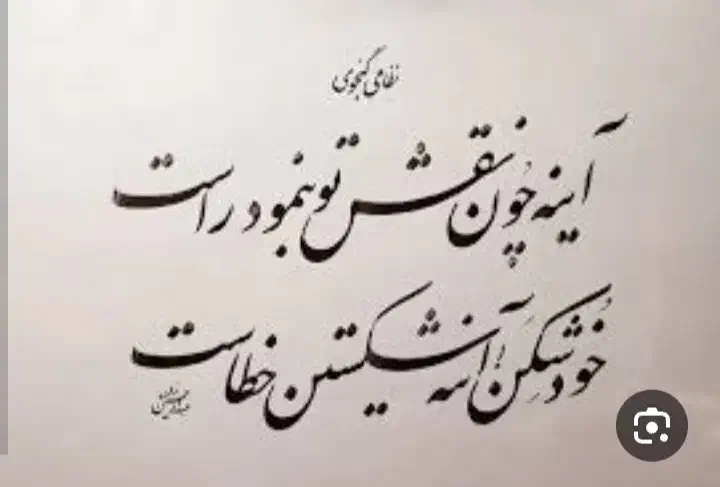 نظامی گنجوی
آینه چُون نقش تو بنمود راست
خُود شکَن آینه شکستن خطاست